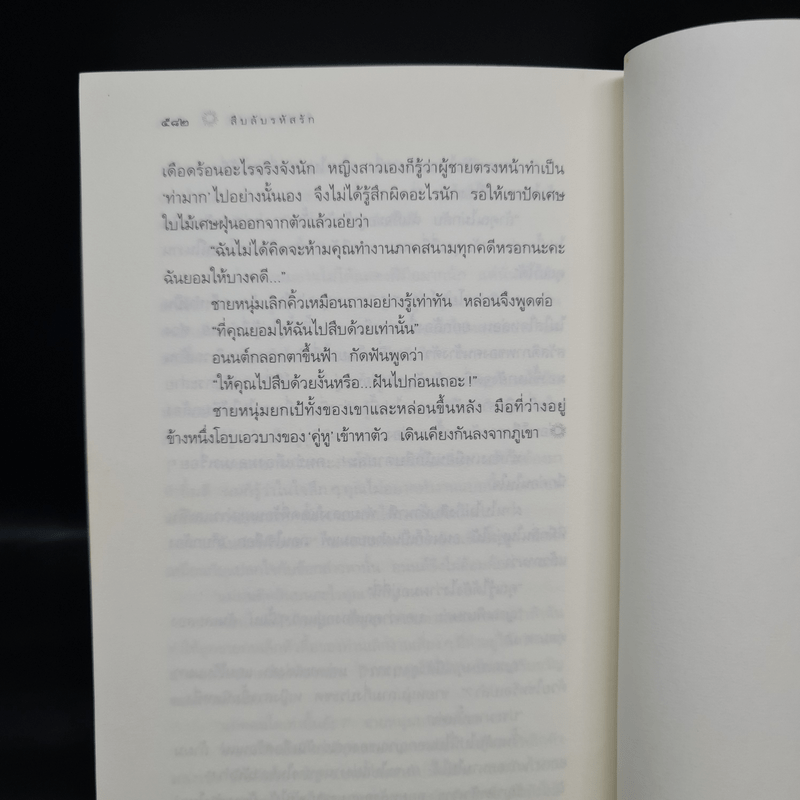 ๕๘๒ สืบลับรหัสรัก
เดือดร้อนอะไรจริงจังนัก หญิงสาวเองก็รู้ว่าผู้ชายตรงหน้าทำเป็น
‘ท่ามาก’ ไปอย่างนั้นเอง จึงไม่ได้รู้สึกผิดอะไรนัก รอให้เขาปัดเศษ
ใบไม้เศษฝุ่นออกจากตัวแล้วเอ่ยว่า
“ฉันไม่ได้คิดจะห้ามคุณทำงานภาคสนามทุกคดีหรอกนะคะ
ฉันยอมให้บางคดี...”
ชายหนุ่มเลิกคิ้วเหมือนถามอย่างรู้เท่าทัน หล่อนจึงพูดต่อ
“ที่คุณยอมให้ฉันไปสืบด้วยเท่านั้น”
อนนต์กลอกตาขึ้นฟ้า กัดฟันพูดว่า
“ให้คุณไปสืบด้วยงั้นหรือ...ฝันไปก่อนเถอะ!”
ชายหนุ่มยกเป้ทั้งของเขาและหล่อนขึ้นหลัง มือที่ว่างอยู่
ข้างหนึ่งโอบเอวบางของ ‘คู่หู’ เข้าหาตัว เดินเคียงกันลงจากภูเขา